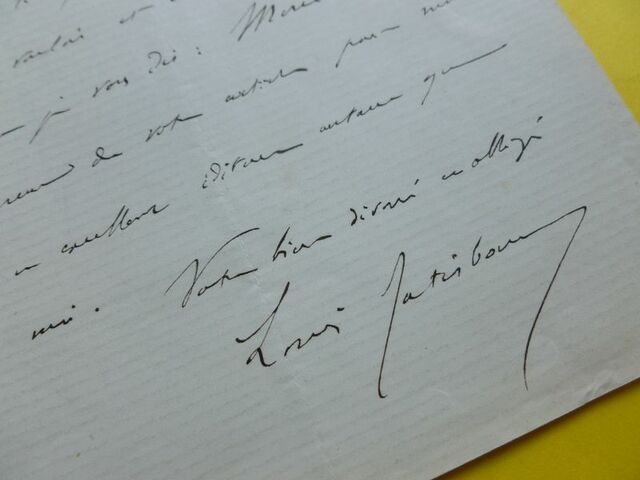 voulais et
je vous dis : Merci
de votre article pour
excellent écrivain autant que
mi. Votre bien dévoué et obligé
Louis Ratisbonne